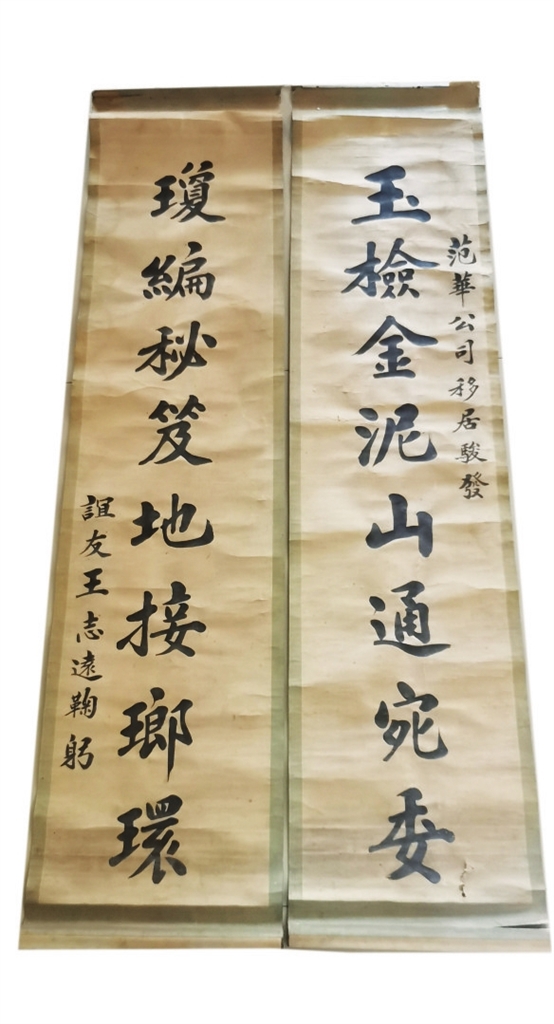 范華公司移居駿發
玉檢金泥山通宛委
瓊編秘笈地接瑯環
誼友王志遠鞠躬